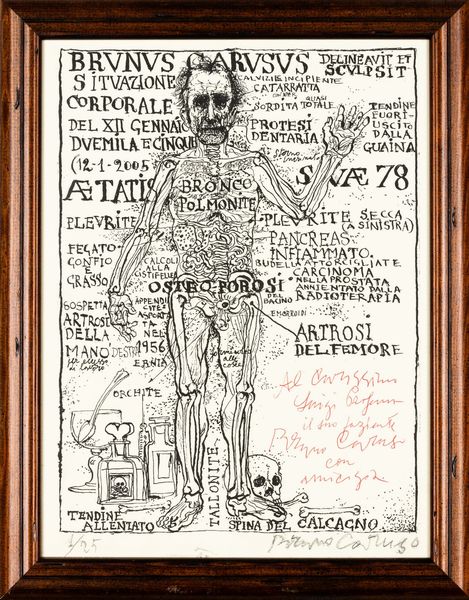 BRUNUS CARUSUS DELINEAVIT ET
SCULPSIT
SITUAZIONE
CORPORALE
DEL XII GENNAIO
DVEMILA E CINQUE
(12-1-2005)
CALVIZIE INCIPIENTE
CATARRATTA
QUASI
SORDITA TOTALE
PROTESI
DENTARIA
TENDINE
FUORI-
USCITO
DALLA
GUAINA
ÆTATIS SVÆ 78
BRONCO
POLMONITE
PLEVRITE
PLEVRITE SECCA
(A SINISTRA)
FEGATO
GONFIO
E
GRASSO
CALCOLI
ALLA
CISTIFELLEA
PANCREAS
INFIAMMATO.
BUDELLA ATTORCIGLIATE
CARCINOMA
NELLA PROSTATA
ANNIENTATO DALLA
RADIOTERAPIA
OSTEO-POROSI
DEL
BACINO
EMORROIDI
SOSPETTA
ARTROSI
DELLA
MANO DESTRA
per eccesso
di lavoro
APPENDI
CITE
ASPOR
TATA
NEL
1956
ERNIA
ORCHITE
ARTROSI
DEL FEMORE
formicolio
alle
cosce
Al Carissimo
Luigi
il suo paziente
Bruno Caruso
con
amicizia
TALLONITE
TENDINE
ALLENTATO
SPINA DEL CALCAGNO
1/25
Bruno Caruso